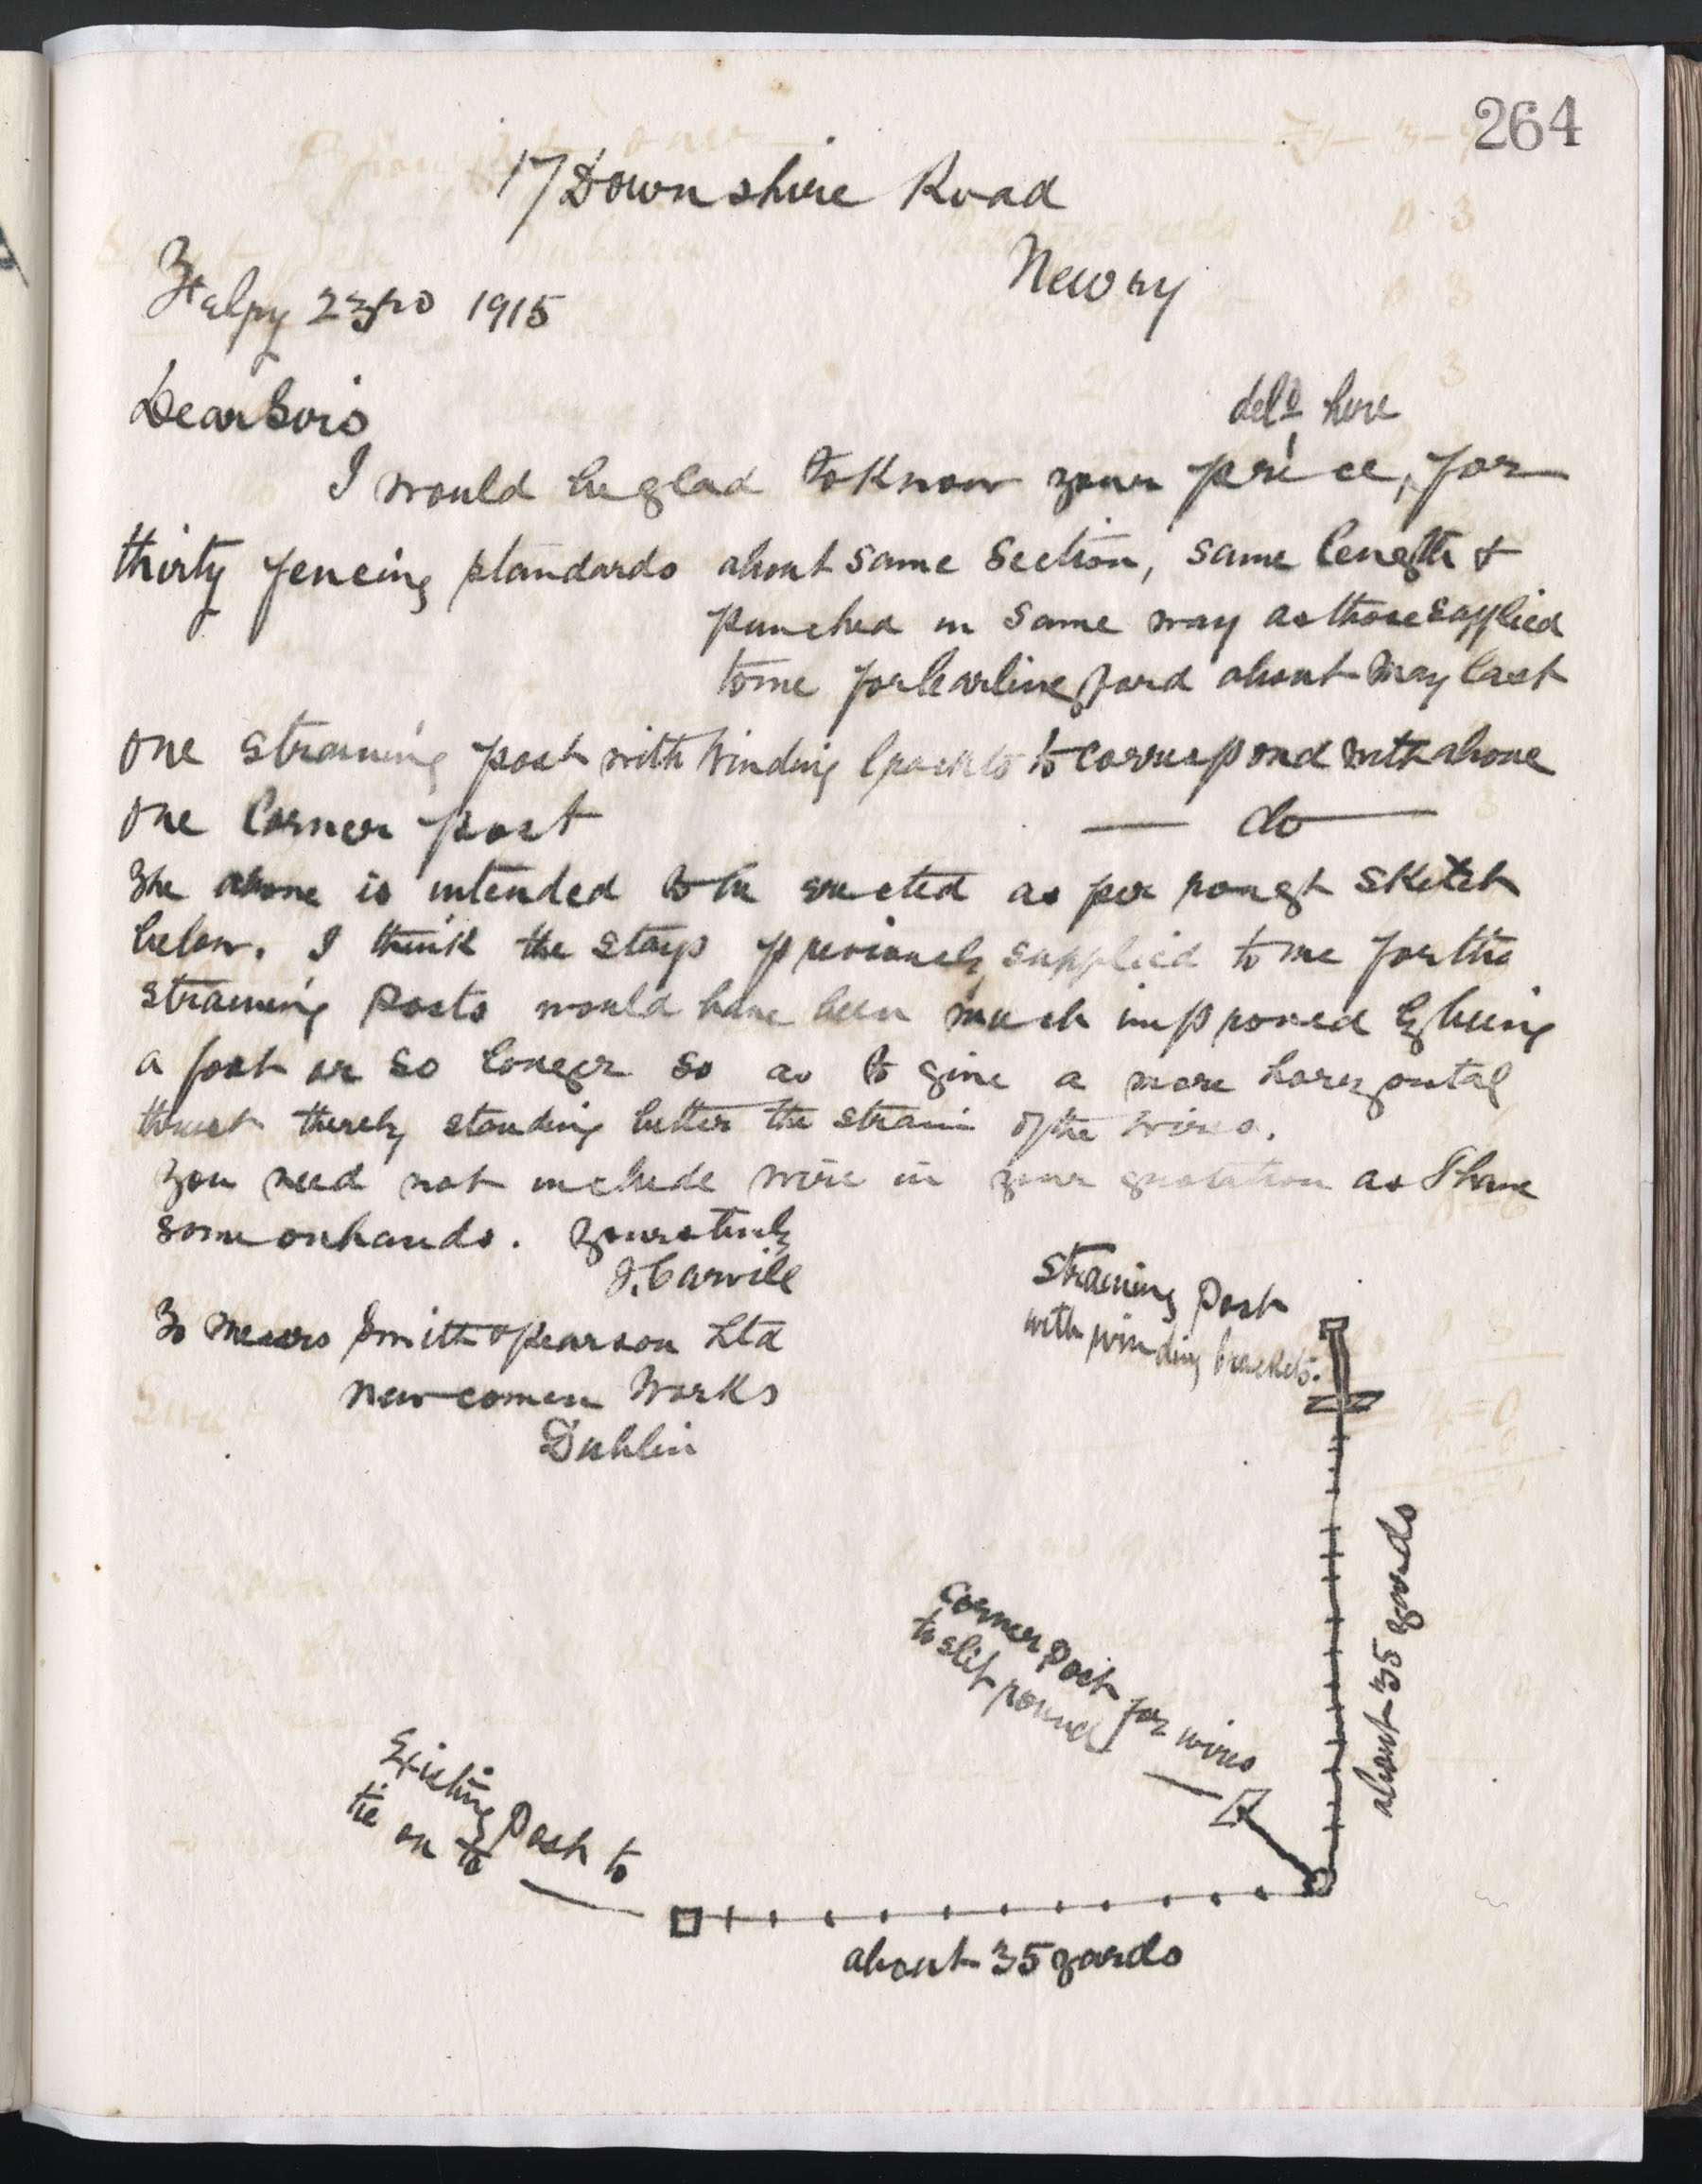 264
17 Downshire Road
Newry
23rd 1915
Dear Sirs
del^d here
I would be glad to know your price, for
thirty fencing standards about same section, same length &
punched in same way as those supplied
to me for Carlingford about May last
one straining post with winding brackets to correspond with above
one Corner post — do —
The above is intended to be erected as per rough sketch
below. I think the stays previously supplied to me for the
straining posts would have been much improved by being
a foot or so longer so as to give a more horizontal
thrust thereby standing better the strain of the wires.
You need not include wire in your quotation as I have
some on hands. Yours truly
J. Carvill
To Messrs Smith & Pearson Ltd
Newcomen Works
Dublin
Straining Post
with winding brackets.
about 35 yards
Corner Post for wires
to slit round
Existing Post to
tie on to
about 35 yards